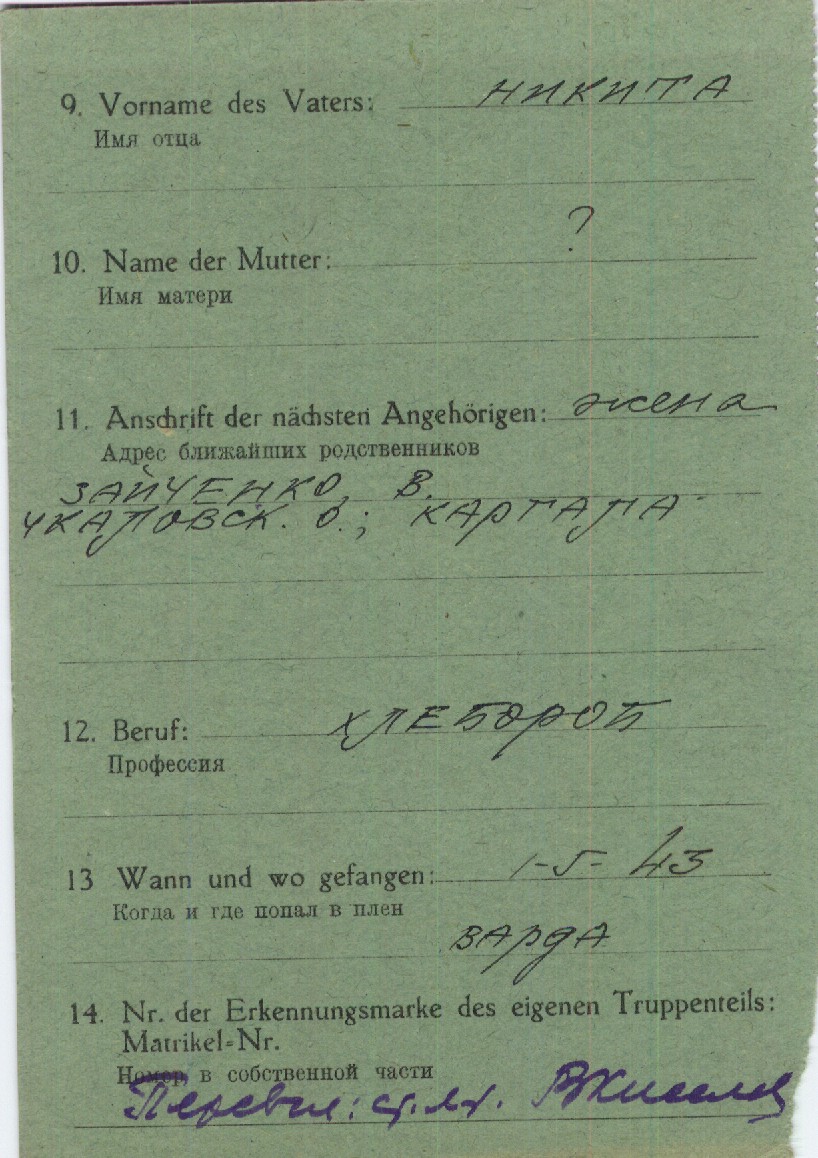 9. Vorname des Vaters: НИКИТА
Имя отца
10. Name der Mutter: ?
Имя матери
11. Anschrift der nächsten Angehörigen: жена
Адрес ближайших родственников
ЗАЙЧЕНКО, В.
ЧКАЛОВСК. О.; КАРГАЛА
12. Beruf: ХЛЕБОРОБ
Профессия
13 Wann und wo gefangen: 1-5-43
Когда и где попал в плен
ВАРДА
14. Nr. der Erkennungsmarke des eigenen Truppenteils:
Matrikel=Nr.
Номер в собственной части
Перевел: ст. лт. ВКиселев